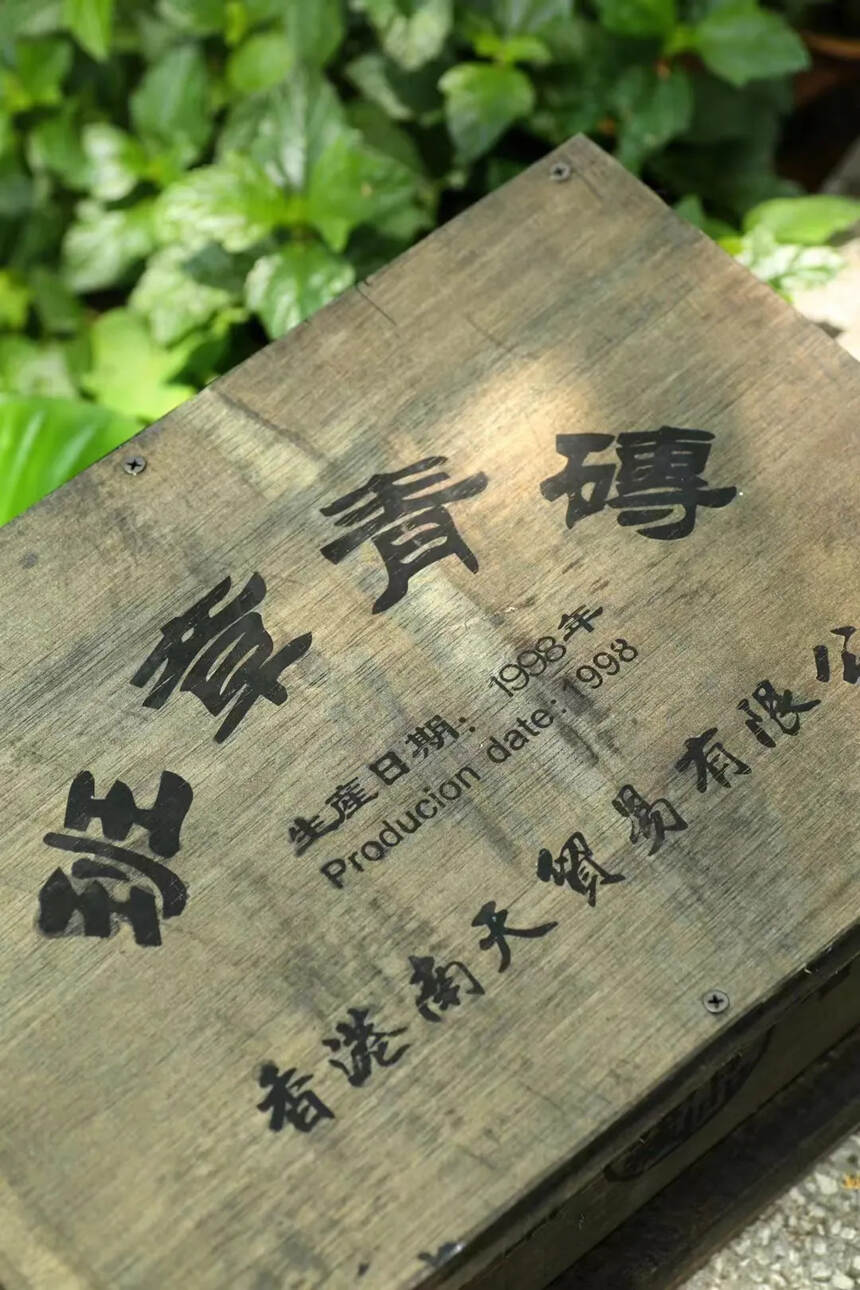 班章青磚
生産日期：1998年
Producion date:1998
香港南天貿易有限公